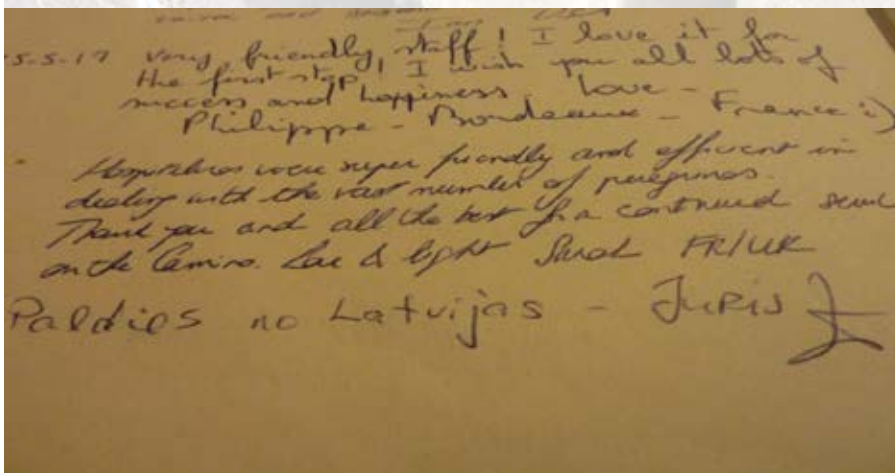 5-5-17 very friendly staff! I love it for
the first stop, I wish you all lots of
success and happiness. Love -
Philippe - Bordeaux - France :)
Hospitaleros were super friendly and efficient in
dealing with the vast number of peregrinos.
Thank you and all the best for a continued
on the Camino. Love & light Sarah FR/UK
Paldies no Latvijas - Juris